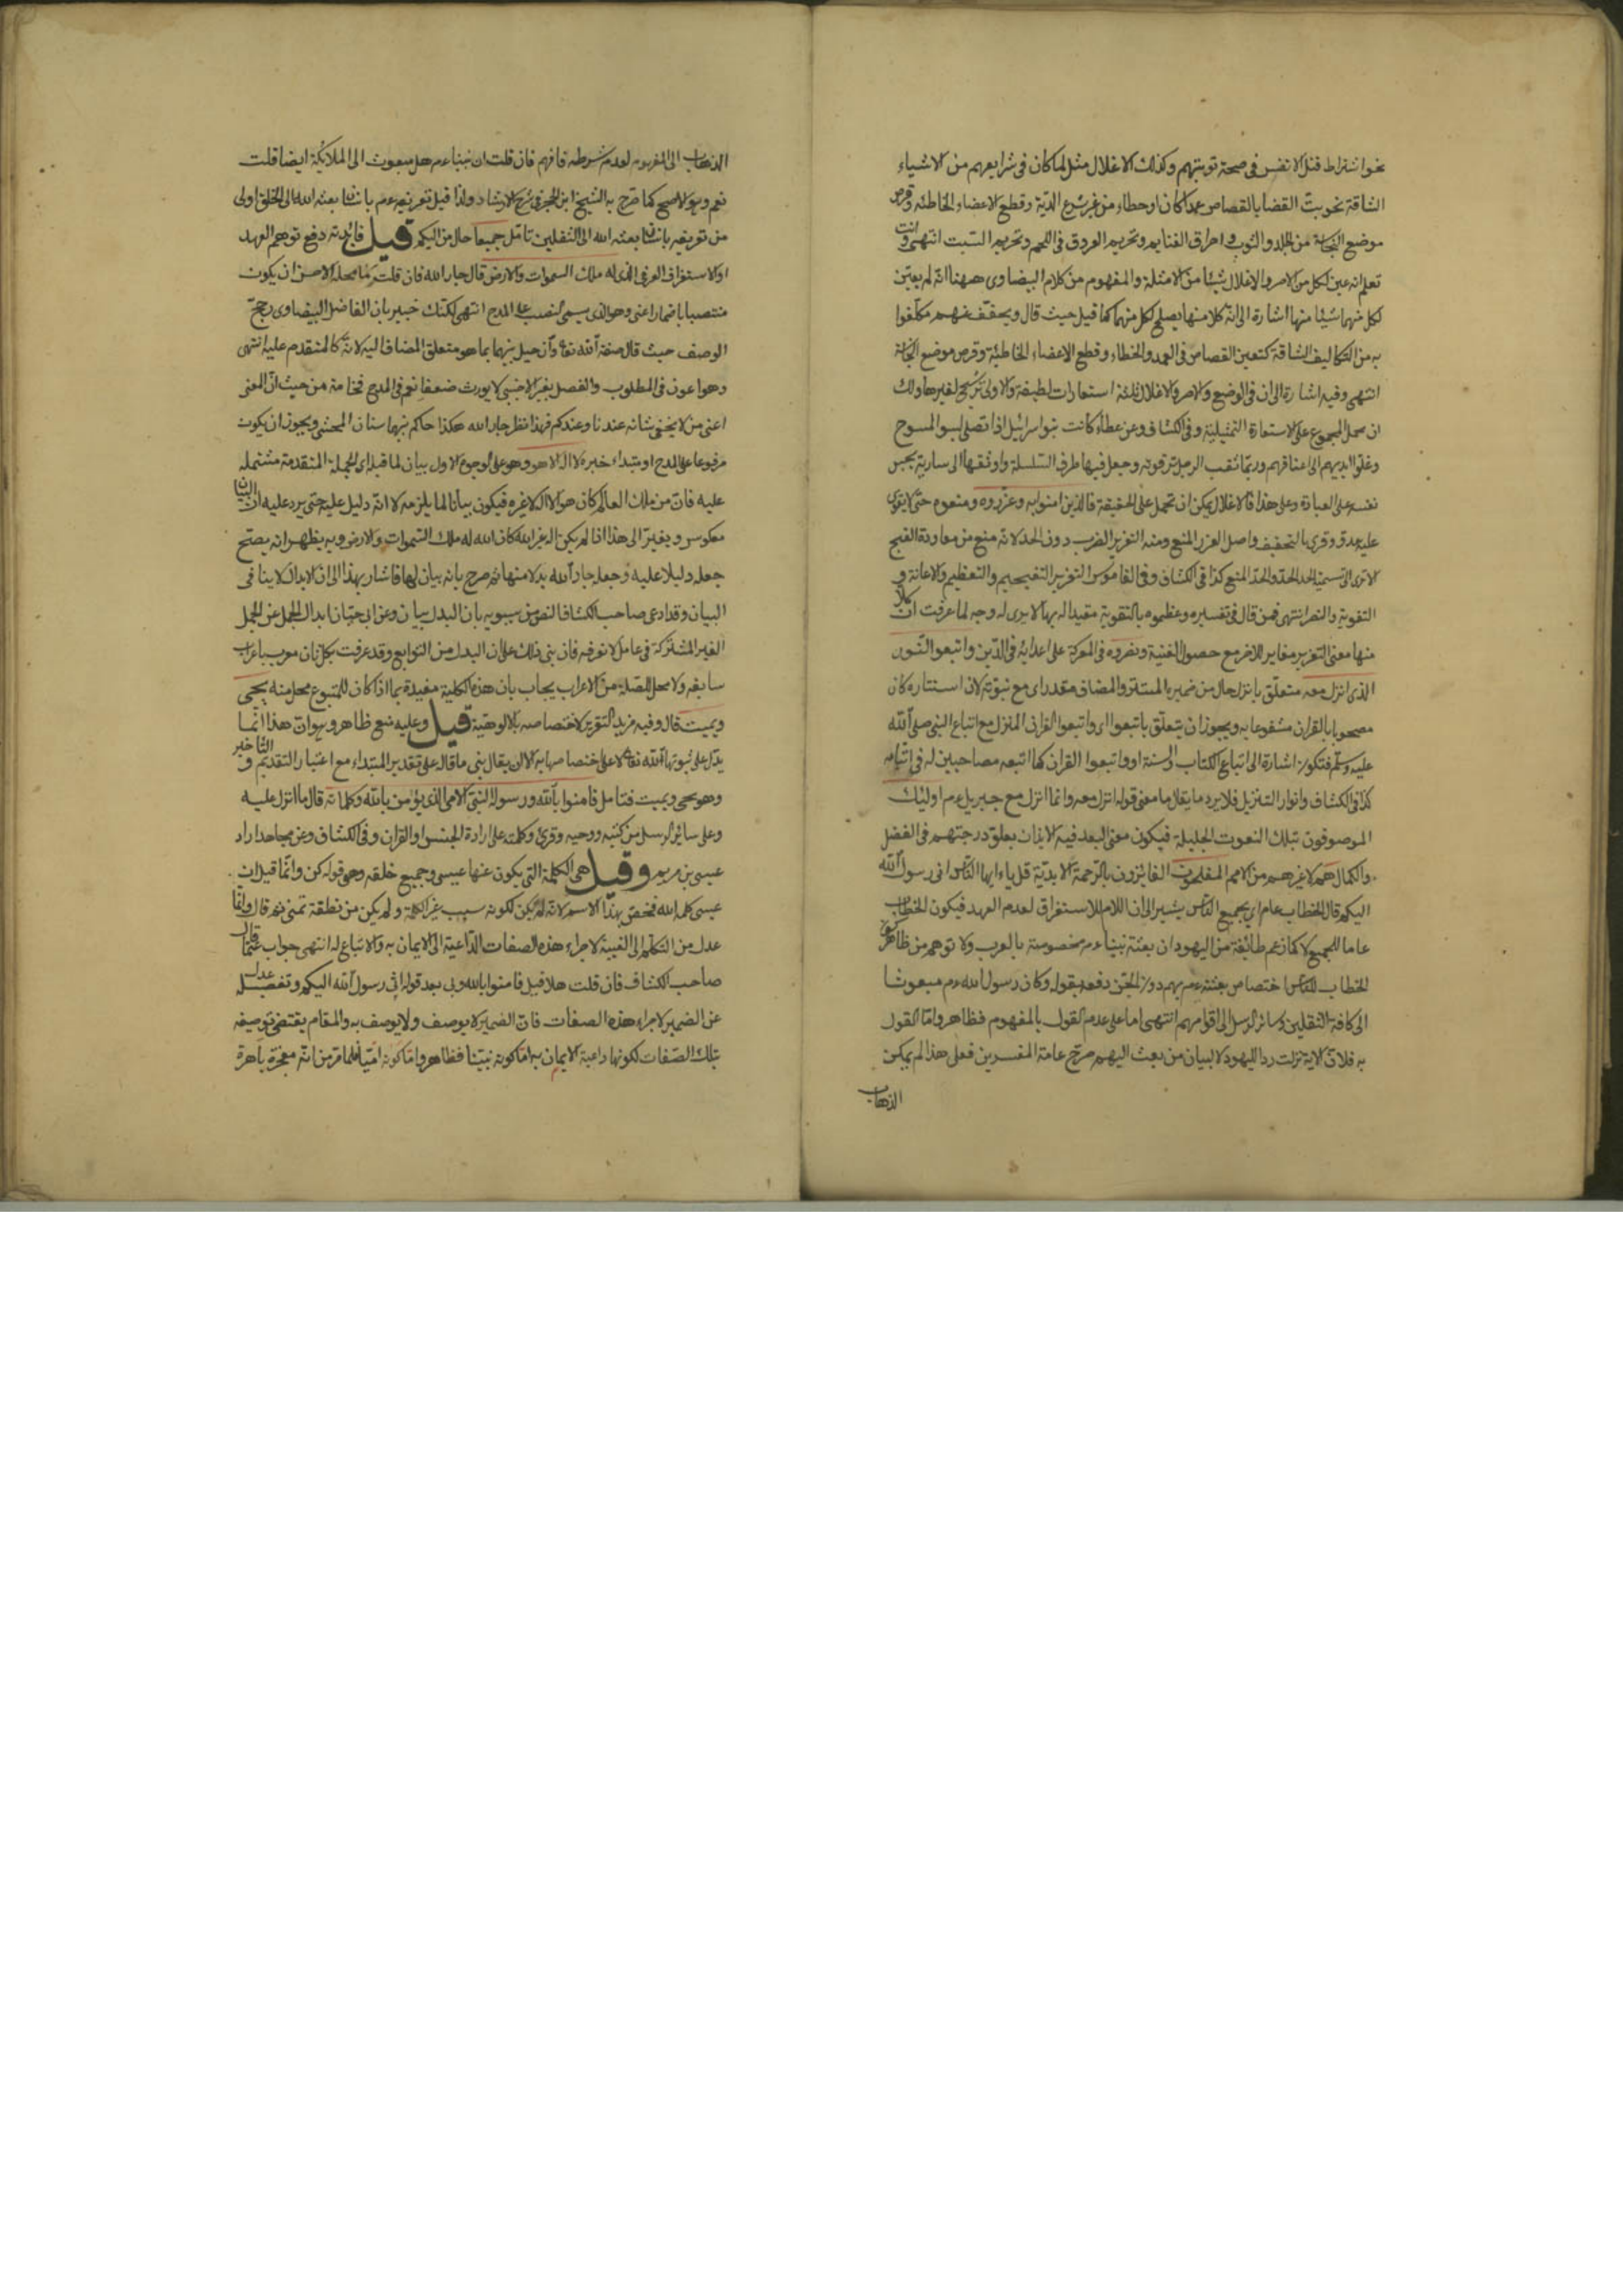 نحو اشتراط قتل الانفس فى صحة توبتهم وكذلك الاغلال مثل لما كان فى شرايعهم من الاشياء
الشاقة نحو بتّ القضا بالقصاص عمدا كان او خطاء من غير شرع الدّية وقطع الاعضاء الخاطئة وقرض
موضع النجاسة من الجلد والثوب واحراق الغنايم وتحريم العروق فى اللحم وتحريم السّبت انتهى وانت
تعلم انه عين لكل من الاصر والاغلال شيئا من الامثلة والمفهوم من كلام البيضاوى ههنا انه لم يعيّن
لكل منهما شيئا منها اشارة الى انّ كلا منها يصلح لكل منهما كما قيل حيث قال ويخفّف عنهم ما كلّفوا
به من التكاليف الشاقة كتعين القصاص فى العمد والخطاء وقطع الاعضاء الخاطئة وقرض موضع النجاسة
انتهى وفيه اشارة الى ان فى الوضع والاصر والاغلال ثلثة استعارات لطيفة والاولى ترشيح لغيرها ولك
ان تحمل المجموع على الاستعارة التمثيلية وفى الكشاف وعن عطاء كانت بنو اسرائيل اذا تصلى لبسوا المسوح
وغلّوا ايديهم الى اعناقهم وربّما ثقب الرجل ترقوته وجعل فيها طرف السّلسلة واوثقها الى سارية يحبس
نفسه على العبادة وعلى هذا فالاغلال يمكن ان تحمل على الحقيقة فالذين امنوا به وعزّروه ومنعوه حتى لا يقوى
عليه عدو وقرئ بالتخفيف واصل العزر المنع ومنه التعزير للضرب دون الحد لانه منع من معاودة القبيح
الا ترى الى تسمية الحد الحدّ والحدّ المنع كذا فى الكشاف وفى القاموس التعزير التفخيم والتعظيم والاعانة و
التقوية والنصر انتهى فمن قال فى تفسيره وعظموه بالتقوية مقيدا له بها لا يرى له وجه لما عرفت انّ كلا
منها معنى التعزير مغاير للاخر مع حصول الغنية ونصروه فى المعركة على اعدائه فى الدّين واتبعوا النّور
الذى انزل معه متعلّق بانزل حال من ضميره المستتر والمضاف مقدر اى مع نبوّته لان استنباءه كان
مصحوبا بالقران مشفوعا به ويجوز ان يتعلّق باتبعوا اى واتبعوا القران المنزل مع اتباع النبى صلى الله
عليه وسلّم فتكون اشارة الى اتباع الكتاب والسنة او واتبعوا القران كما اتبعه مصاحبين له فى اتباعه
كذا فى الكشاف وانوار التنزيل فلا يرد ما يقال ما معنى قوله انزل معه وانما انزل مع جبريل ءم اوليك
الموصوفون بتلك النعوت الجليلة فيكون معنى البعد فيه الايذان بعلو درجتهم فى الفضل
والكمال هم لا غيرهم من الامم المفلحون الفائزون بالرّحمة الابديّة قل يا ايها النّاس انى رسول الله
اليكم قال الخطاب عام اى بجميع النّاس يشير الى ان اللام للاستغراق لعدم العهد فيكون الخطاب
عاما للجميع لا كما زعم طائفة من اليهود ان بعثة نبيناءم مخصوصة بالعرب ولا توهم من ظاهر كون
الخطاب للنّاس اختصاص بعثته ءم بهم دون الجنّ دفعه بقوله وكان رسول الله ءم مبعوثا
الى كافة الثقلين وسائر الرسل الى اقوامهم انتهى اما على عدم القول بالمفهوم فظاهر وامّا القول
به فلان الاية نزلت ردا لليهود لا لبيان من بعث اليهم صرّح عامة المفسرين فعلى هذا لم يمكن
الذهاب
الذهاب الى المفهوم لعدم شرطه فافهم فان قلت ان نبيناءم هل مبعوث الى الملايكة ايضا قلت
نعم وهو الاصح كما صرّح به الشيخ ابن الحجر فى شرح الارشاد ولذا قيل تعريفه ءم بانسان بعثه الله الى الخلق اولى
من تعريفه بانسان بعثه الله الى الثقلين تامّل جميعا حال من اليكم قيل فائدته دفع توهم العهد
او الاستغراق العرفى الذى له ملك السموات والارض قال جار الله فان قلت ما محله الاحسن ان يكون
منتصبا باضمار اعنى وهو الذى يسمى النصب على المدح انتهى لكنك خبير بان الفاضل البيضاوى رجّح
الوصف حيث قال صفة الله تعا وان حيل بينهما بما هو متعلق المضاف اليه لانّه كالمتقدم عليه انتهى
وهو اعون فى المطلوب والفصل بغير الاجنبى لا يورث ضعفا نعم فى المدح فخامة من حيث انّ المعنى
اعنى من لا يخفى شانه عندنا وعندكم فهذا نظر جار الله هكذا حاكم بينهما سنان المحشى ويجوز ان يكون
مرفوعا على المدح او مبتداء خبره لا اله الا هو وهو على الوجوه الاول بيان لما قبله اى الجملة المتقدمة مشتملة
عليه فانّ من ملك العالم كان هو الاله لا غيره فيكون بيانا لما يلزمه لا انّه دليل عليه حتى يرد عليه انّ البيان
معكوس ويغيّر الى هذا اذا لم يكن اله غير الله كان الله له ملك السّموات والارض وبه يظهر انه يصحّ
جعله دليلا عليه وجعله جار الله بدلا منها ثم صرح بانه بيان لها فاشار بهذا الى ان الابدال لا ينافى
البيان وقد ادعى صاحب الكشاف النص من سيبويه بان البدل بيان وعن ابى حيّان ابدال الجمل عن الجمل
الغير المشتركة فى عامل لا نعرفه فان بنى ذلك على ان البدل من التوابع وقد عرفت بكل ثان معرب باعراب
سابقه ولا محل للصلة من الاعراب يجاب بان هذه الكلية مفيدة بما اذا كان للمتبوع محل منه يحيى
ويميت قال وفيه مزيد التقرير لاختصاصه بالالوهيّة قيل وعليه منع ظاهر وهو انّ هذا انّما
يدل على ثبوتها الله تعا لا على اختصاصها به الا ان يقال بنى ما قاله على تقدير المبتداء مع اعتبار التقديم والتّاخير
وهو يحى ويميت فتامل فامنوا بالله ورسوله النّبىّ الامى الذى يؤمن بالله وكلماته قال ما انزل عليه
وعلى سائر الرسل من كتبه ووحيه وقرئ وكلمته على ارادة الجنس او القران وفى الكشاف وعن مجاهد اراد
عيسى بن مريم وقيل هى الكلمة التى يكون عنها عيسى وجميع خلقه وهى قوله كن وانّما قيل ان
عيسى كلمة الله فخصّ بهذا الاسم لانه لم يكن لكونه سبب غير الكلمة ولم يكن من نطفة تمنى ثم قال وانّما
عدل من التكلّم الى الغيبة لاجراء هذه الصفات الدّاعية الى الايمان به والاتباع له انتهى جواب عمّا قال
صاحب الكشاف فان قلت هلا قيل فامنوا بالله وبى بعد قوله انّى رسول الله اليكم وتفصيله عدل
عن الضمير لاجراء هذه الصفات فانّ الضمير لا يوصف ولا يوصف به والمقام يقتضى توصيفه
بتلك الصّفات لكونها داعية الايمان به امّا كونه نبيّنا فظاهر وامّا كونه امّيّا فلما مرّ من انّه معجزة باهرة